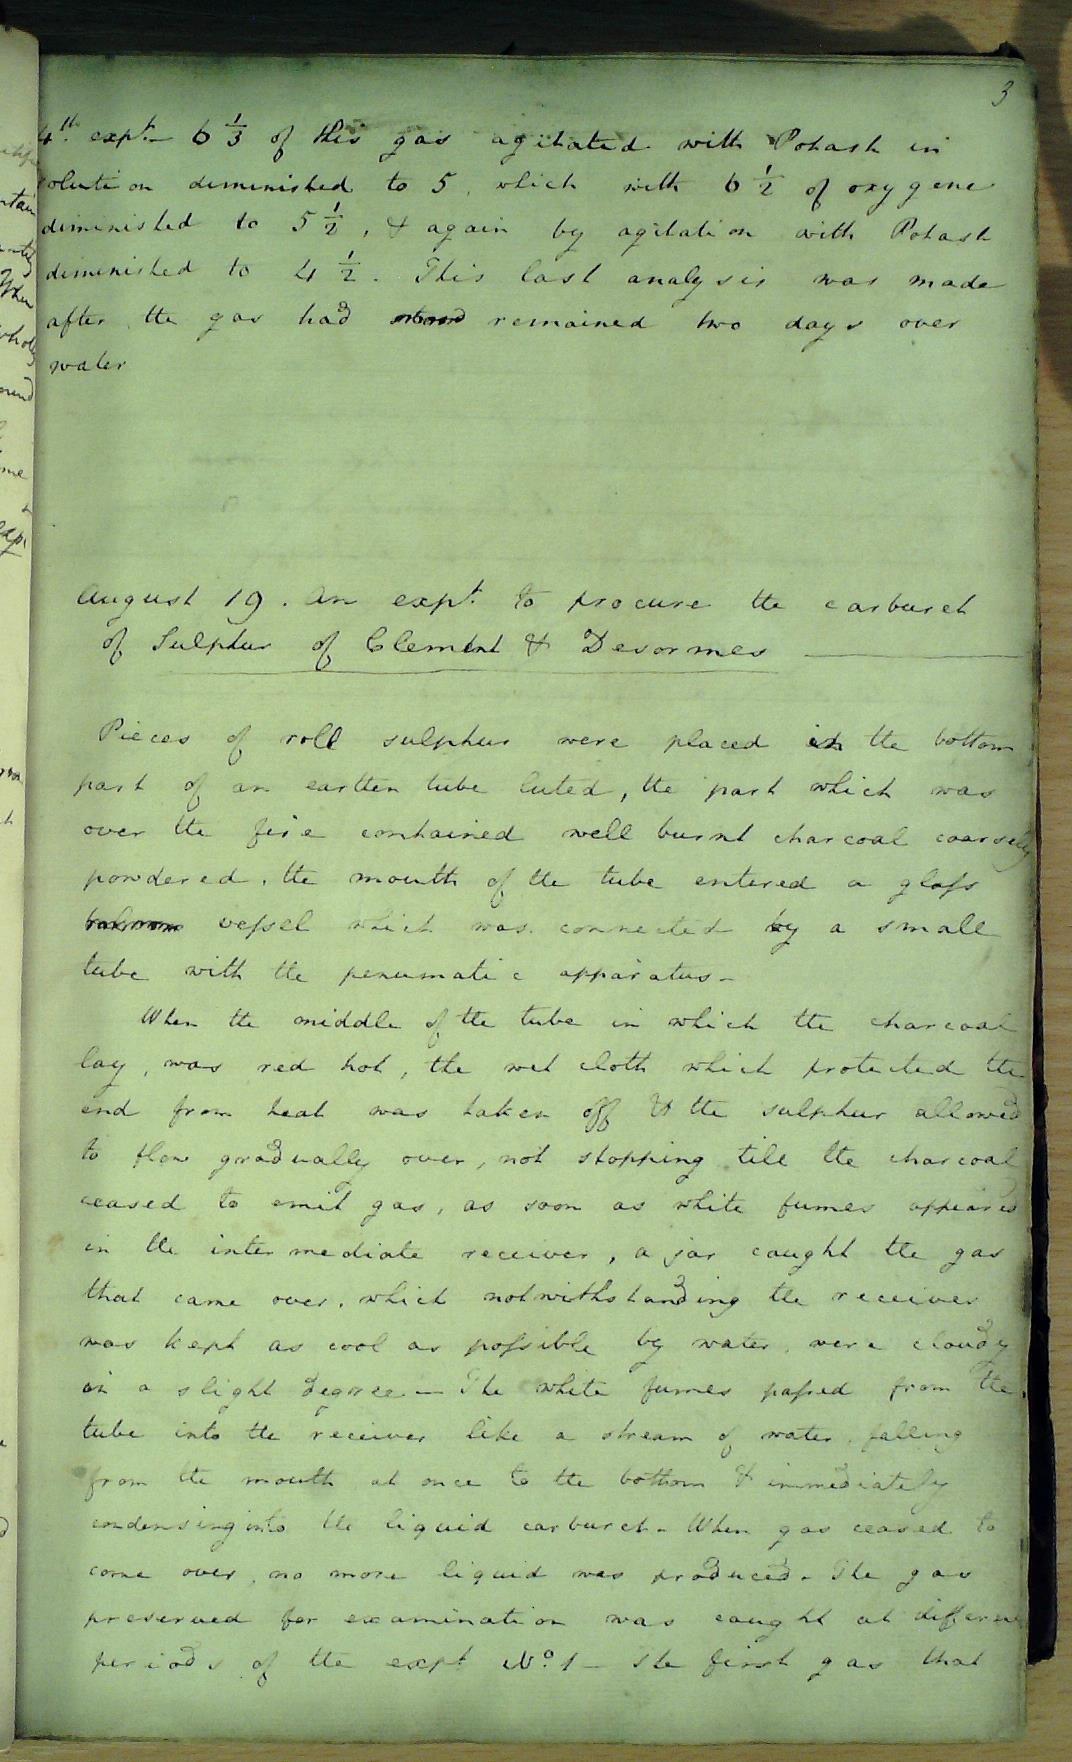 3
4th. expt.- 6 1/3 of this gas agitated with Potash in
solution diminished to 5, which with 6 1/2 of oxygene
diminished to 5 1/2, & again by agitation with Potash
diminished to 4 1/2. This last analysis was made
after the gas had stood remained two days over
water
August 19. An expt. to procure the carburet
of Sulphur of Clement & Desormes
Pieces of roll sulphur were placed in the bottom
part of an earthen tube luted, the part which was
over the fire contained well burnt charcoal coarsely
powdered, the mouth of the tube entered a glass
baloon vessel which was connected by a small
tube with the penumatic apparatus-
When the middle of the tube in which the charcoal
lay, was red hot, the wet cloth which protected the
end from heat was taken off & the sulphur allowed
to flow gradually over, not stopping till the charcoal
ceased to emit gas, as soon as white fumes appeared
in the intermediate receiver, a jar caught the gas
that came over, which notwithstanding the receiver
was kept as cool as possible by water, were cloudy
in a slight degree - The white fumes passed from the
tube into the receiver like a stream of water, falling
from the mouth at once to the bottom & immediately
condensing into the liquid carburet - When gas ceased to
come over, no more liquid was produced - The gas
preserved for examination was caught at different
periods of the expt No. 1 - The first gas that